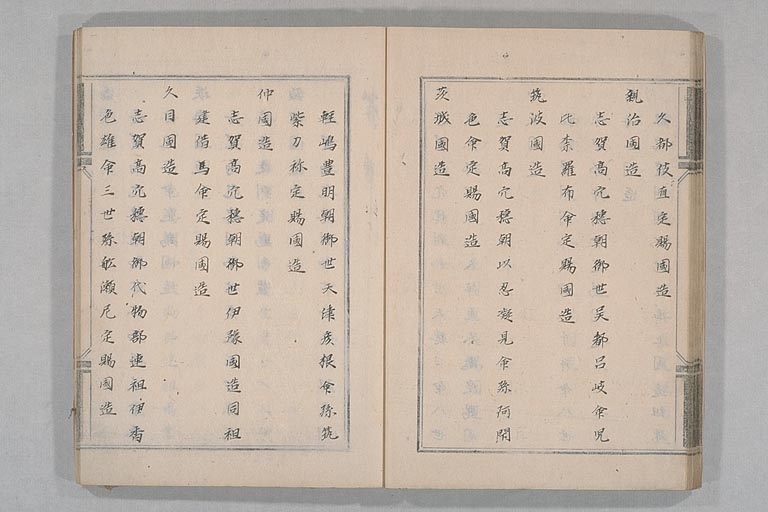 久都伎直定賜國造
新治國造
志賀高穴穗朝御世美都呂岐命児
比奈羅布命定賜國造
筑波國造
志賀高穴穗朝以忍凝見命孫阿閇
色命定賜國造
茨城國造
輕嶋豊明朝御世天津彦根命孫筑
紫刀祢定賜國造
仲國造
志賀高穴穗朝御世伊豫國造同祖
建借馬命定賜國造
久目國造
志賀高穴穗朝御代物部連祖伊香
色雄命三世孫舩瀬足定賜國造